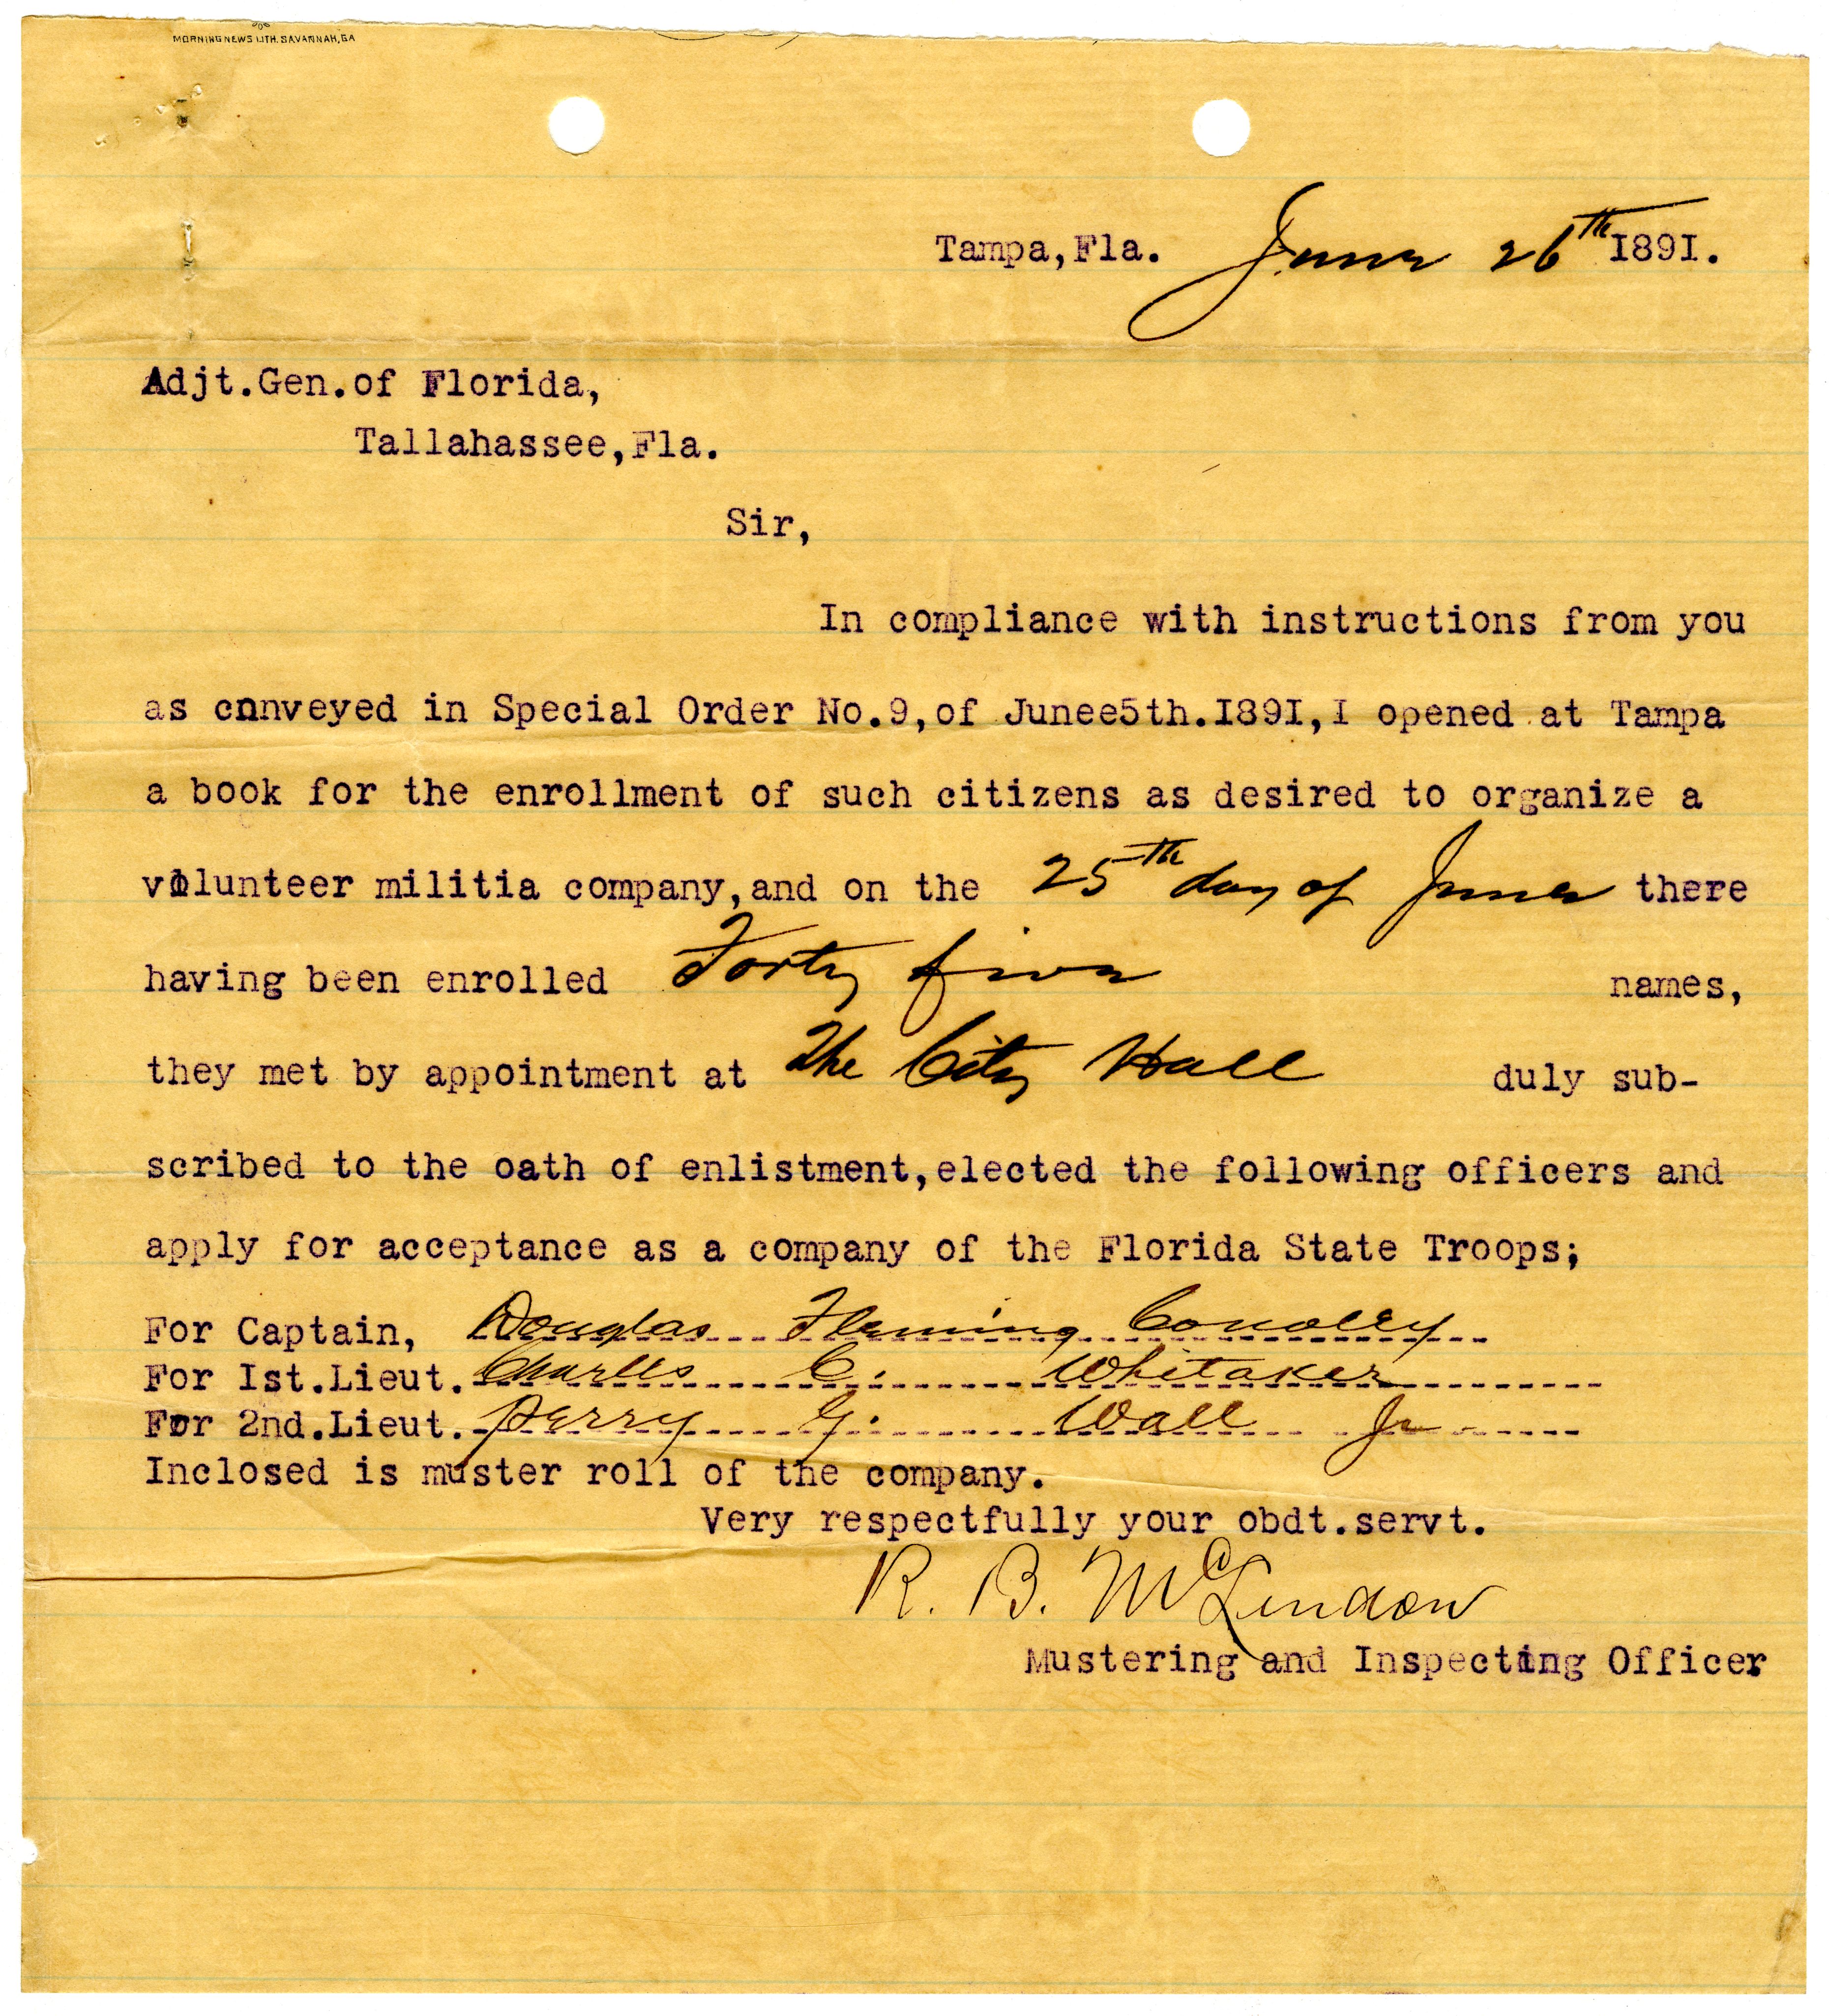 MORNING NEWS LITH. SAVANNAH, GA
Tampa,Fla. June 26th I89I.
Adjt.Gen.of Florida,
Tallahassee,Fla.
Sir,
In compliance with instructions from you
as cnnveyed in Special Order No.9,of Junee5th.I89I,I opened at Tampa
a book for the enrollment of such citizens as desired to organize a
volunteer militia company,and on the 25th day of June there
having been enrolled Forty five names,
they met by appointment at The City Hall duly sub-
scribed to the oath of enlistment,elected the following officers and
apply for acceptance as a company of the Florida State Troops;
For Captain, Douglas Fleming Conolly
For Ist.Lieut. Charles C. Whitaker
For 2nd.Lieut. Perry G. Wall Jr
Inclosed is muster roll of the company.
Very respectfully your obdt.servt.
R. B. McLendon
Mustering and Inspecting Officer